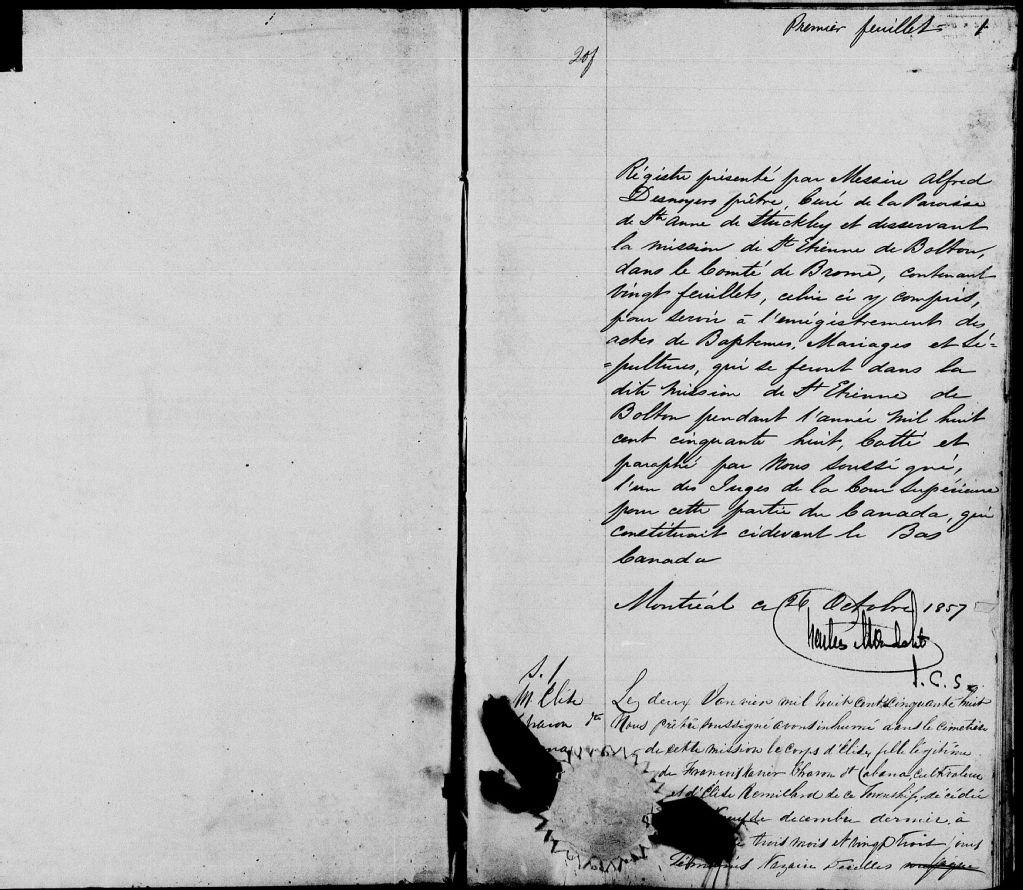 Premier feuillet 1
20f
Régistre présenté par Messire Alfred
Desnoyers prêtre, Curé de la Paroisse
de Ste Anne de Stuckley et desservant
la mission de St Etienne de Bolton,
dans le Comté de Brome, contenant
vingt feuillets, celui ci y compris,
pour servir à l'enrégistrement des
actes de Baptemes, Mariages et Sé-
-pultures, qui se feront dans la
dite mission de St Etienne de
Bolton pendant l'année mil huit
cent cinquante huit, Cotté et
paraphé par Nous soussigné,
l'un des Juges de la Cour Supérieure
pour cette partie du Canada, qui
constituait cidevant le Bas
Canada
Montréal ce 26 Octobre 1857
Charles Mondelet
J. C. S.
S. 1
M. Elise
Charon dte
Le deux Janvier mil huit cent cinquante huit
Nous prêtre soussigné avons inhumé dans le cimetière
de cette mission le corps d'Elise, fille légitime
de François Xavier Charon dt Cabana, cultivateur
et d'Elise Remillard de ce Township, décédée
de decembre dernier, à
trois mois et vingt trois jours
Nazaire